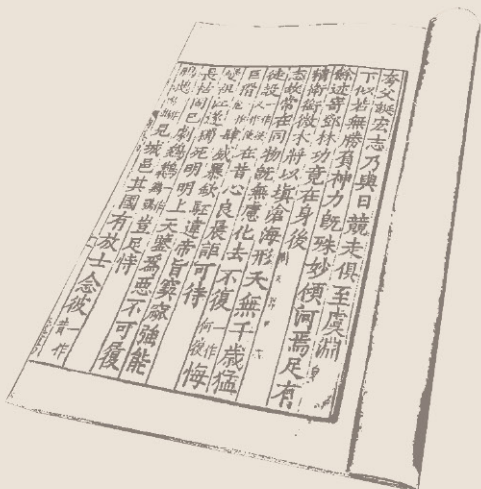 夸父誕宏志乃與日競走俱至虞淵
下似若無勝負神力既殊妙傾河焉足有
餘迹寄鄧林功竟在身後
精衛銜微木將以填滄海形夭無千歲猛
志故常在同物既無慮化去不復一作何復悔
徒設一作在昔心良晨詎可待
巨猾肆威暴欽駓違帝旨窫窳強能
變祖江遂獨死明明上天鑒為惡不可履
長枯固已劇鵕鶚豈足恃
見城邑其國有放士念彼一作